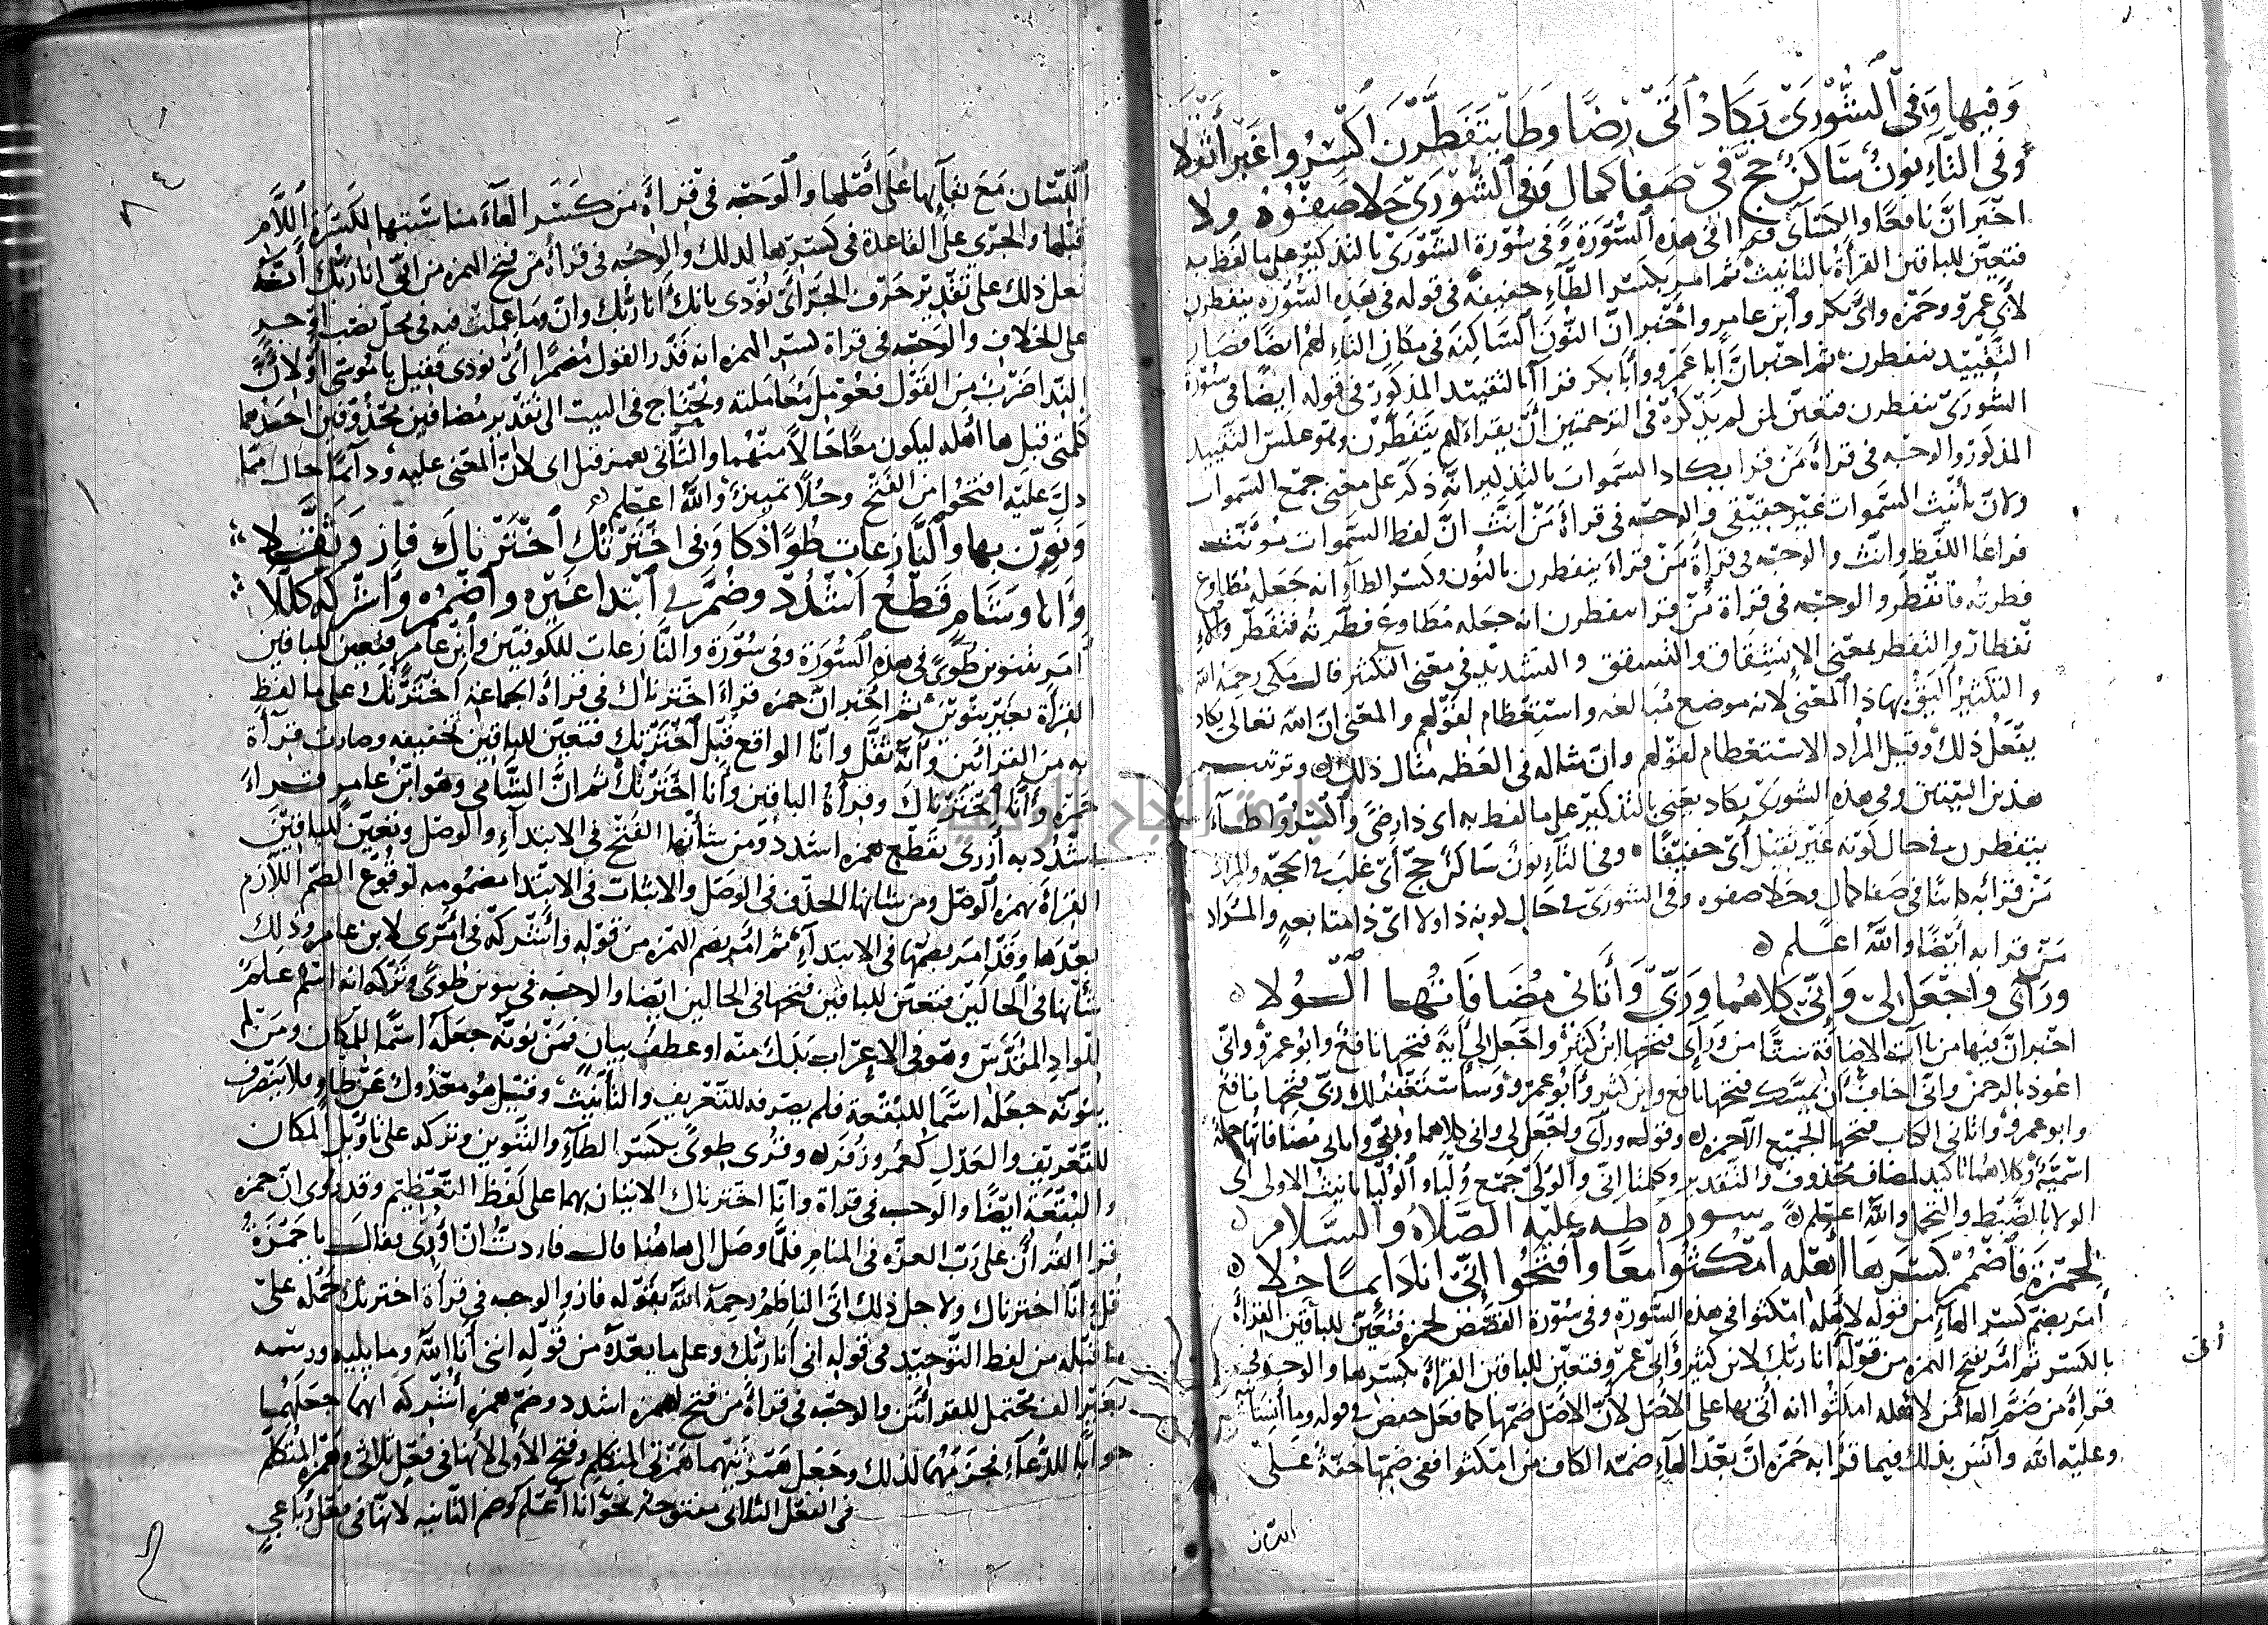 وَفِيهَا وَفِى ٱلشُّورَىٰ يَكَادُ أَتَىٰ رِضًا وَطَا يَتَفَطَّرْنَ ٱكْسِرُوا غَيْرَ أَثْقَلَا
وَفِى التَّاءِ نُونٌ سَاكِنٌ حَجَّ فِى صَفَا كَمَالٍ وَفِى ٱلشُّورَىٰ حَلَا صَفْوُهُ وِلَا
اخبر ان نافعا والكسائى قرا فى هذه السورة وفى سورة الشورى بالتذكير على ما لفظ به
فتعين للباقين القراة بالتانيث ثم امر بكسر الطاء خفيفة فى قوله فى هذه السورة ينفطرن
لابى عمرو وحمزة وابى بكر وابن عامر واخبر ان النون الساكنة فى مكان التاء لهم ايضا فصار
التقييد ينفطرن ثم اخبر ان ابا عمرو وابا بكر قرا بالتقييد المذكور فى قوله ايضا فى سورة
الشورى ينفطرن فتعين لمن لم يذكره فى الترجمتين ان يقراءلهم يتفطرن وهو على التقييد
المذكور والوجه فى قراة من قرا يكاد السموات بالتذكير انه ذكر على معنى جمع السموات
ولان تانيث السموات غير حقيقى والوجه فى قراة من انث ان لفظ السموات مونث
فراعا اللفظ وانث والوجه فى قراة من قراء ينفطرن بالنون وكسر الطاء انه جعله مطاوع
فطرته فانفطر والوجه فى قراة من قرا يتفطرن انه جعله مطاوع فطرته فتفطر
والتفطر بمعنى الانشقاق والتشقق والتشديد فى معنى التكثير قال مكى رحمه الله
والتكثير اليق بهاذا المعنى لانه موضع مبالغة واستعظام لقولهم والمعنى ان الله تعالى يكاد
يفعل ذلك وقيل المراد الاستعظام لقولهم وان مثاله فى العظم مثال ذلك وترتيب
هذين البيتين وفى هذه الشورى يكاد يعنى بالتذكير على ما لفظ به اى ذا رضى واكسروا طاء
يتفطرن فى حال كونه غير ثقيل اى خفيفا وفى التاء نون ساكن حج اى غلب فى الحجة والمراد
من قرا به كائنا فى صفا كمال وحلا صفوه وفى الشورى فى حال كونه ذا ولا اى ذا متابعة والمراد
من قرا به ايضا والله اعلم
وَرَاءِى وَٱجْعَلْ لِى وَإِنِّى كِلَاهُمَا وَرَبِّى وَآتَانِى مُضَافَاتُهَا ٱلْوُلَا
اخبر ان فيها من ياءات الاضافة ستا من وراءى فتحها ابن كثير واجعل لى اية فتحها نافع وابو عمرو وانى
اعوذ بالرحمن وانى اخاف ان يمسك فتحهما نافع وابن كثير وابو عمرو وساستغفر لك ربى فتحها نافع
وابو عمرو واتانى الكتاب فتحها الجميع الا حمزة وقوله وراءى واجعل لى وانى كلاهما وربى واتانى مضافاتها جملة
اسمية وكلاهما تاكيد لمضاف محذوف والتقدير وكلمتا انى والولى جمع وليا والوليا تانيث الاولى اى
الولا بالضبط والتحمل والله اعلم سورة طه عليه الصلاة والسلام
لِحَمْزَةَ فَٱضْمُمْ كَسْرَ هَا أَهْلِهِ ٱمْكُثُوا مَعًا وَٱفْتَحُوا إِنِّى أَنَا دَائِمًا حُلَا
امر بضم كسر الهاء من قوله لاهله امكثوا فى هذه السورة وفى سورة القصص لحمزة فتعين للباقين القراة
بالكسر ثم امر بفتح الهمزة من قوله انا ربك لابن كثير وابى عمرو فتعين للباقين القراة بكسرها والوجه فى
قراة من ضم الهاء من لاهله امكثوا انه اتى بها على الاصل لان الاصل ضمها كما فعل حفص فى قوله وما انسانيه
وعليه الله وانس بذلك فيما قرا به حمزة ان بعد الهاء ضمة الكاف من امكثوا ففى ضمها خفة على
اللسان
اللسان مع بقائها على اصلها والوجه فى قراة من كسر الهاء مناسبتها لكسرة اللام
قبلها والجرى على القاعدة فى كسرتها لذلك والوجه فى قراة من فتح الهمزة من انى انا ربك انه
فعل ذلك على تقدير حرف الجر اى نودى بانك انا ربك وان وما عملت فيه فى محل نصب او جر
على الخلاف والوجه فى قراة كسر الهمزة انه قدر القول مضمرا اى نودى فقيل يا موسى او لان
الندا ضرب من القول فعومل معاملته ويحتاج فى البيت الى تقدير مضافين محذوفين احدهما
كلمتى قبل ها اهله ليكون معا حالا منهما والثانى بهمز قبل اى لان المعنى عليه ودائما حال مما
دل عليه افتحوا من الفتح وحلا تمييز والله اعلم
وَنَوِّنْ بِهَا وَٱلنَّازِعَاتِ طُوًى ذَكَا وَفِى ٱخْتَرْتُكَ ٱخْتَرْنَاكَ فَازَ وَثَقَّلَا
وَأَنَّا وَشَامٍ قَطْعُ أَشْدُدْ وَضُمَّ فِى ٱبْتِدَا غَيْرِهِ وَٱضْمُمْ وَأَشْرِكْهُ كَلْكَلَا
امر بتنوين طوى فى هذه السورة وفى سورة والنازعات للكوفيين وابن عامر فتعين للباقين
القراة بغير تنوين ثم اخبر ان حمزة قراء اخترناك فى قراة الجماعة اخترتك على ما لفظ
به من القراءتين وانه ثقل وانا الواقع قبل اخترتك فتعين للباقين تخفيفه وصارت قراة
حمزة وانا اخترناك وقراة الباقين وانا اخترتك ثم ان الشامى وهو ابن عامر قراء
اشدد به ازرى بقطع همزة اشدد ومن شانها الفتح فى الابتداء والوصل وتعين للباقين
القراة بهمزة الوصل ومن شانها الحذف فى الوصل والاثبات فى الابتدا مضمومة لوقوع الضم اللازم
بعدها وقد امر بضمها فى الابتداء ثم امر بضم الهمزة من قوله واشركه فى امرى لابن عامر وذلك
شانها فى الحالين فتعين للباقين فتحها فى الحالين ايضا والوجه فى تنوين طوى وتركه انه اسم علم
للواد المقدس وهو فى الاعراب بدل منه او عطف بيان فمن نونه جعله اسما للمكان ومن لم
ينونه جعله اسما للبقعة فلم يصرفه للتعريف والتانيث وقيل هو معدول عن طاو فلا ينصرف
للتعريف والعدل كعمر وزفر وقرى طوى بكسر الطاء والتنوين وتركه على تاويل المكان
والبقعة ايضا والوجه فى قراة وانا اخترناك الاتيان بهما على لفظ التعظيم وقد روى ان حمزة
قرا القران على رب العزة فى المنام فلما وصل الى هاهنا قال فاردت ان اودى فقال يا حمزة
قل وانا اخترناك ولاجل ذلك اتى الناظم رحمه الله بقوله فاز والوجه فى قراة اخترتك حمله على
ما قبله من لفظ التوحيد فى قوله انى انا ربك وعلى ما بعده من قوله اننى انا الله وما يليه ورسمه
بغير الف محتمل للقراءتين والوجه فى قراة من فتح همزة اشدد وضم همزة اشركه انهما جعلهما
جوابا للدعاء فجزمهما لذلك وجعل همزتيهما همزتى المتكلم وفتح الاولى لانها فى فعل ثلاثى وهمزة المتكلم
فى الفعل الثلاثى مفتوحة نحو انا اعلم وضم الثانية لانها فى فعل رباعى